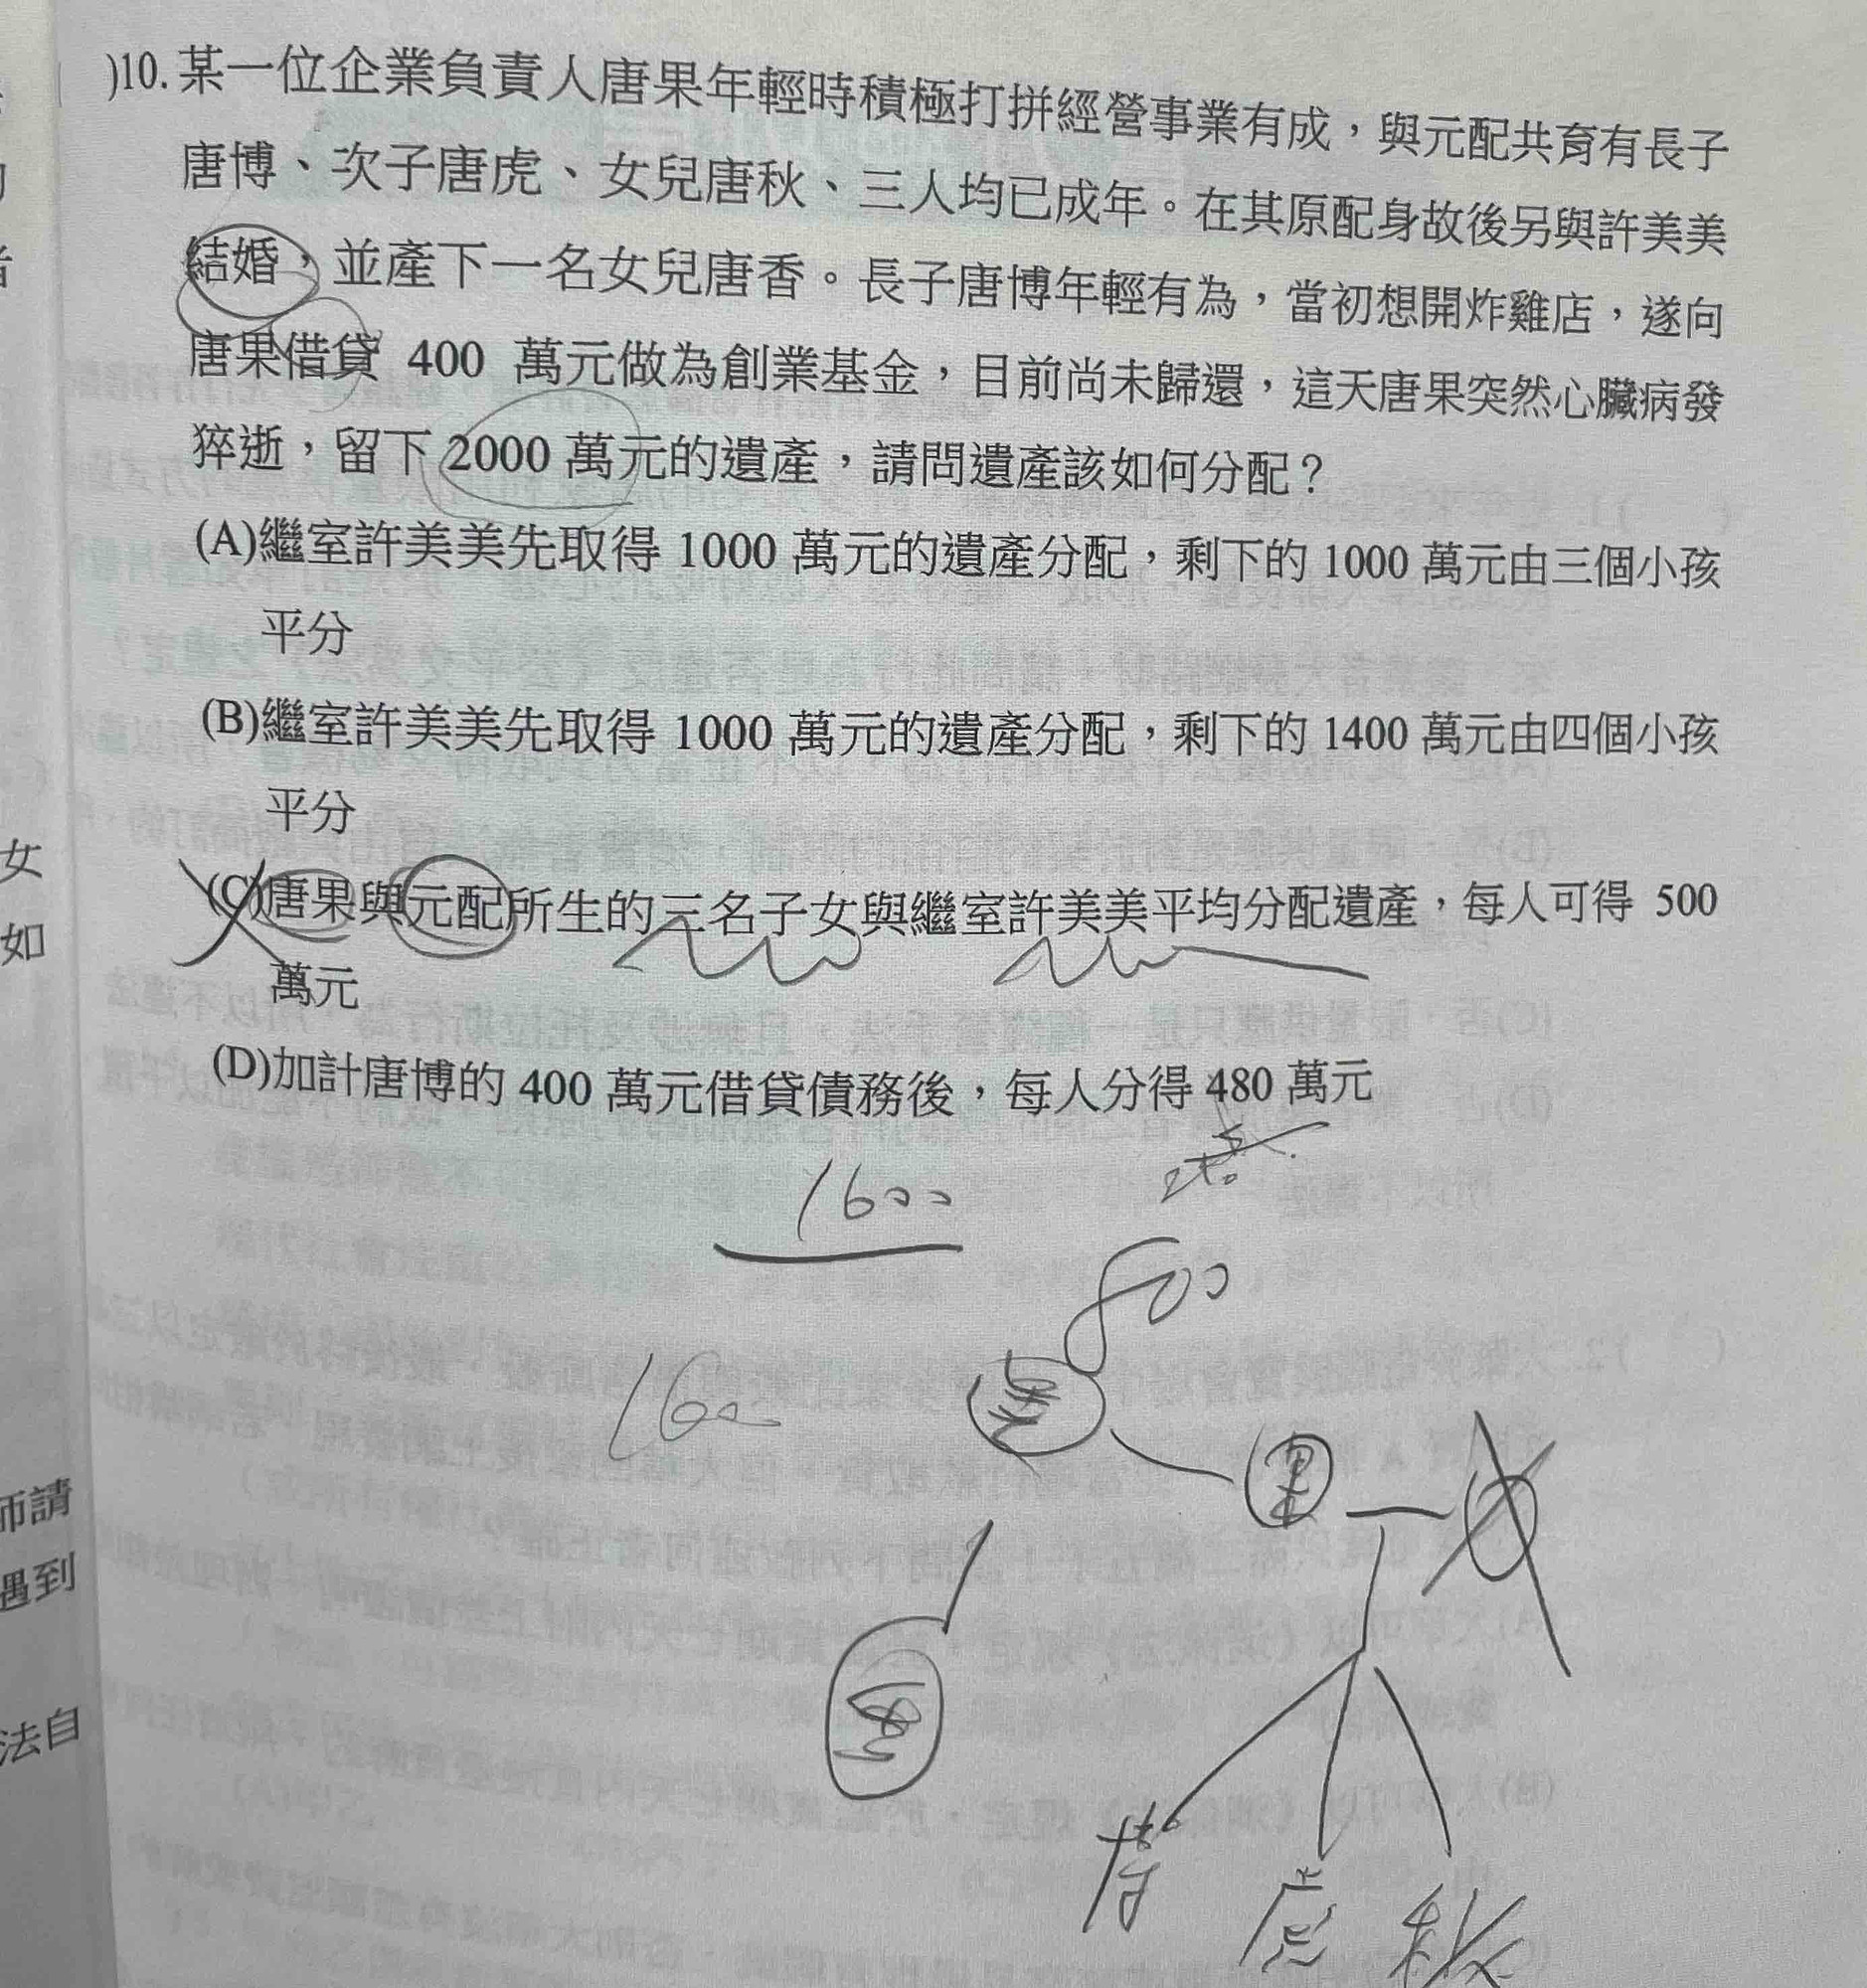 )10. 某一位企業負責人唐果年輕時積極打拼經營事業有成，與元配共育有長子
唐博、次子唐虎、女兒唐秋、三人均已成年。在其原配身故後另與許美美
結婚，並產下一名女兒唐香。長子唐博年輕有為，當初想開炸雞店，遂向
唐果借貸 400 萬元做為創業基金，目前尚未歸還，這天唐果突然心臟病發
猝逝，留下 2000 萬元的遺產，請問遺產該如何分配？
(A)繼室許美美先取得 1000 萬元的遺產分配，剩下的 1000 萬元由三個小孩
平分
(B)繼室許美美先取得 1000 萬元的遺產分配，剩下的 1400 萬元由四個小孩
平分
(C)唐果與元配所生的三名子女與繼室許美美平均分配遺產，每人可得 500
萬元
(D)加計唐博的 400 萬元借貸債務後，每人分得 480 萬元
1600
800
1600
美
果
博
虎 秋
女
如
師請
遇到
法自